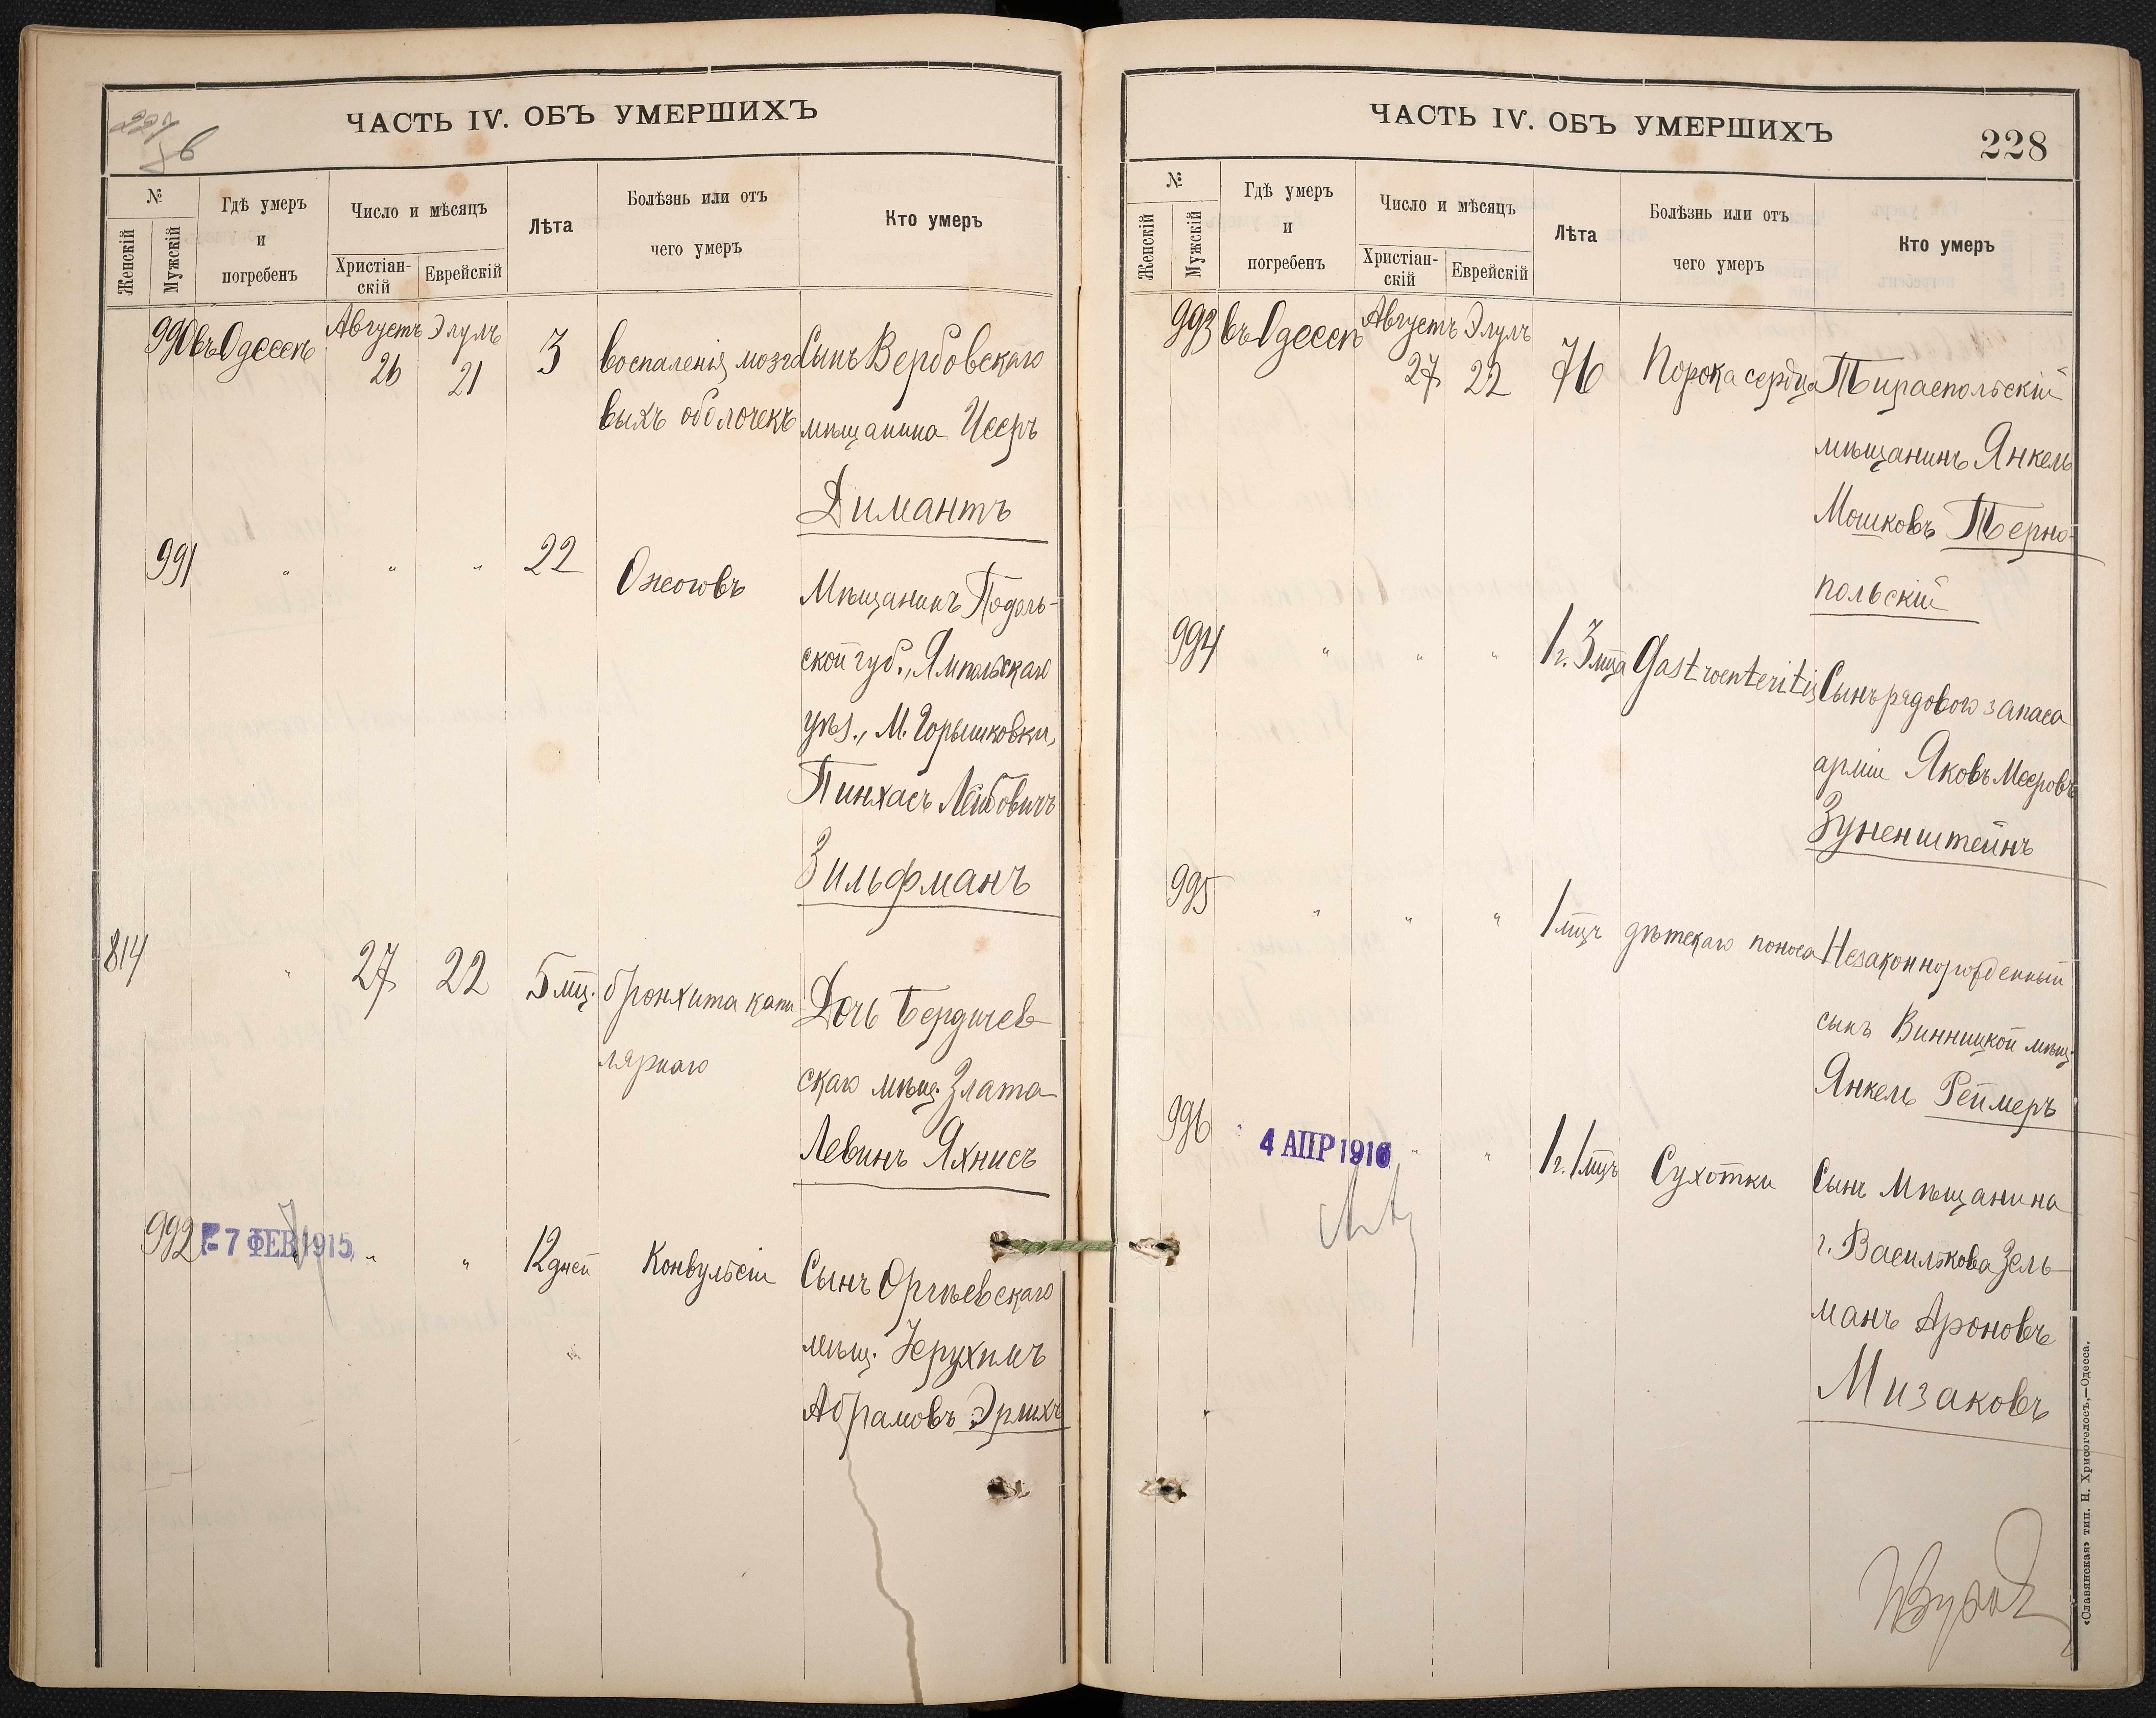 ЧАСТЬ IV. ОБЪ УМЕРШИХЪ
№
Женскій
Мужскій
Гдѣ умеръ
и
погребенъ
Число и мѣсяцъ
Христіан-
скій
Еврейскій
Лѣта
Болѣзнь или отъ
чего умеръ
Кто умеръ
990 въ Одессѣ Августъ Элулъ 3 воспаленія мозго Сынъ Вербовскаго
26 21 выхъ оболочекъ мѣщанина Исеръ
Димантъ
991 " " " 22 Ожоговъ Мѣщанинъ Подоль-
ской губ., Ямпольскаго
уѣз., М. Горышковки,
Пинхасъ Лейбовичъ
Зильфманъ
814 " 27 22 5 мц. бронхита капи- Дочь Бердичев-
лярнаго скаго мѣщ. Злата
Левинъ Яхнисъ
992 - 7 ФЕВ 1915 " " 12 дней Конвульсіи Сынъ Оргѣевскаго
мѣщ. Іерухимъ
Абрамовъ Эрлихъ
ЧАСТЬ IV. ОБЪ УМЕРШИХЪ
228
№
Женскій
Мужскій
Гдѣ умеръ
и
погребенъ
Число и мѣсяцъ
Христіан-
скій
Еврейскій
Лѣта
Болѣзнь или отъ
чего умеръ
Кто умеръ
993 въ Одессѣ Августъ Элулъ 76 Порока сердца Тираспольскій
27 22 мѣщанинъ Янкель
Мошковъ Терно-
польскій
994 " " " 1 г. 3 мца Gastroenteritis Сынъ рядового запаса
арміи Яковъ Мееровъ
Зуненштейнъ
995 " " " 1 мцъ дѣтскаго поноса Незаконнорожденный
сынъ Винницкой мѣщ.
Янкель Реймеръ
996 4 АПР 1916 " " 1 г. 1 мцъ Сухотки Сынъ Мѣщанина
г. Василькова Зель-
манъ Ароновъ
Мизаковъ
«Славянская» тип. Н. Хрисогелосъ,—Одесса.